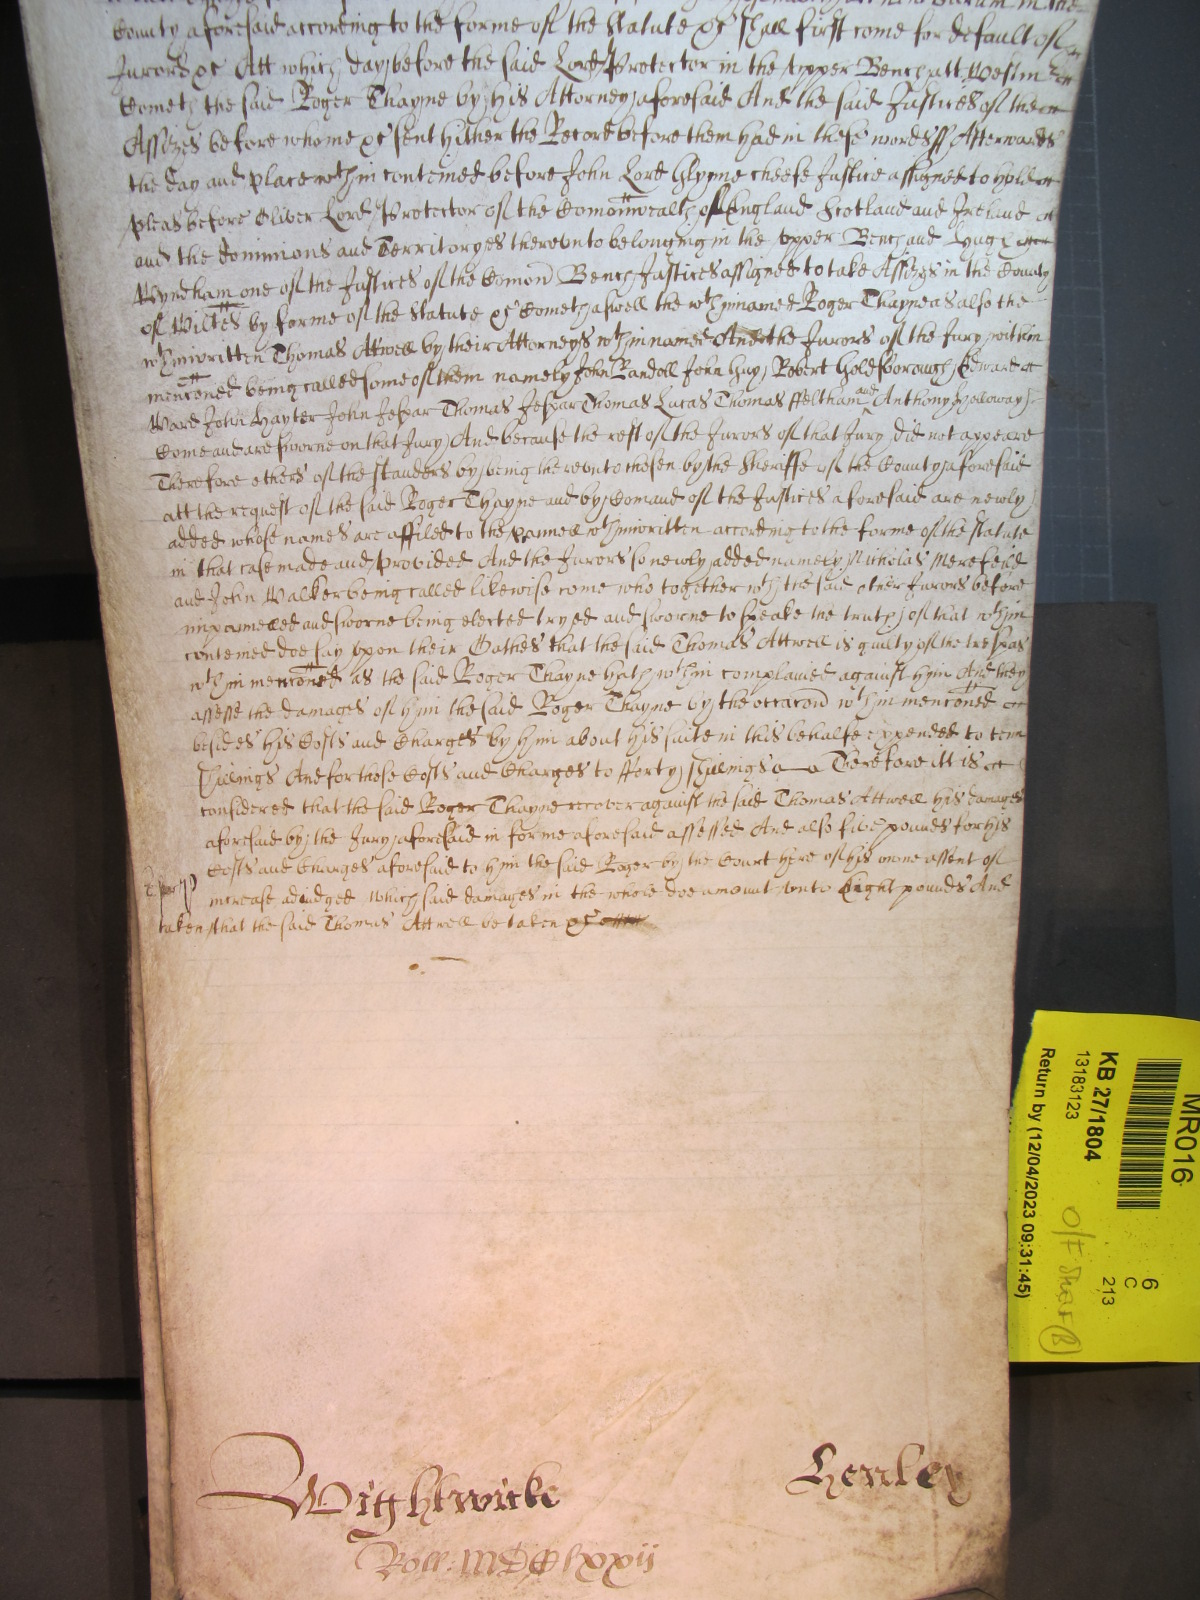 County aforesaid according to the forme of the Statute &c shall first come for default of
Jurors &c Att which day before the said Lord Protector in the upper Bench att Westm
Cometh the said Roger Thayne by his Attorney aforesaid And the said Justices of the
Assizes before whome &c sent hither the Record before them had in these words ss Afterwards
the day and place wthin conteined before John Lord Glynne cheefe Justice assigned to hold
pleas before Oliver Lord Protector of the Comonwealth of England Scotland and Ireland
and the dominions and Territoryes thereunto belonging in the upper Bench and Hugh
Wyndham one of the Justices of the Comon Bench Justices assigned to take Assizes in the County
of Wiltes by forme of the Statute &c Cometh aswell the wthinnamed Roger Thayne as also the
wthinwritten Thomas Attwell by their Attorneys wthin named And the Jurors of the Jury within
menconed being called some of them namely John Randoll John Guy Robert Goldsborough Edward
Ward John Hayter John Jesper Thomas Jesper Thomas Lucas Thomas ffeltham and Anthony Holloway
Come and are sworne on that Jury And because the rest of the Jurors of that Jury did not appeare
Therefore others of the standers by being thereunto chosen by the Sheriffe of the County aforesaid
att the request of the said Roger Thayne and by Comand of the Justices aforesaid are newly
added whose names are affiled to the pannell wthinwritten according to the forme of the statute
in that case made and provided And the Jurors so newly added namely Nicholas Merefeild
and John Walker being called likewise come who together wth the said other Jurors before
impannelled and sworne being elected tryed and sworne to speake the truth of that wthin
conteined doe say upon their Oathes that the said Thomas Attwell is guilty of the trespas
wthin menconed as the said Roger Thayne hath wthin complained against him And they
assesse the damages of him the said Roger Thayne by the occacon wthin menconed
besides his Costs and Charges by him about his suite in this behalfe expended to tenn
shillings And for those Costs and Charges to fforty shillings Therefore itt is
considered that the said Roger Thayne recover against the said Thomas Attwell his damages
aforesaid by the Jury aforesaid in forme aforesaid assessed And also five pounds for his
Costs and Charges aforesaid to him the said Roger by the Court here of his owne assent of
increase adiudged Which said damages in the whole doe amount unto Eight pounds And
taken that the said Thomas Attwell be taken &c
Wightwicke Henley
Roll: MCClxxii
MR016
KB 27/1804
13183123
Return by (12/04/2023 09:31:45)
6
C
213